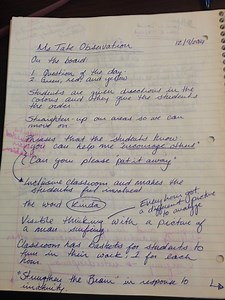 Ms Tate Observation
12/9/2014
On the board
1. Question of the day
2. Green, red and yellow
Students are given directions in the
colours and they give the students
the order.
Straighten-up our areas so we can
move on
Phrases that the students know
"you can help me encourage others"
Can you please put it away"
Inclusive classroom and makes the
students feel involved
the word Kinda
Everyone got
a different picture
to analyze
Visible thinking with a picture of
a man surfing.
Classroom has baskets for students to
turn in their work! 1 for each
hour.
"Strengthen the Beam" in response to